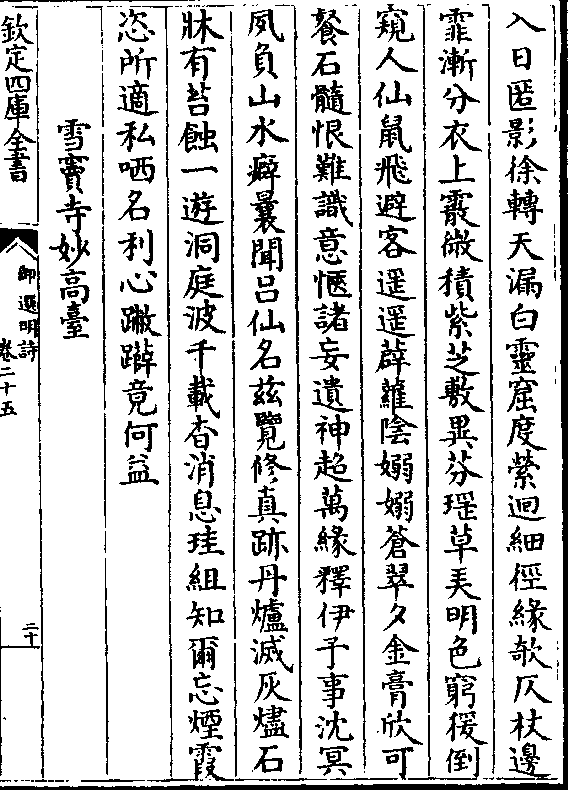 入日匿影徐轉天漏白靈窟度縈迴細徑緣欹仄杖邊
霏漸分衣上霰微積紫芝敷異芬瑶草羙明色窮猨倒
窺人仙鼠飛避客遥遥薜蘿陰嫋嫋蒼翠夕金膏欣可
餐石髓恨難識意愜諸妄遺神超萬緣釋伊予事沈冥
夙負山水癖曩聞吕仙名兹覽修真跡丹爐滅灰燼石
牀有苔蝕一遊洞庭波千載杳消息珪組知爾忘煙霞
恣所適私哂名利心蹩躠竟何益
雪竇寺妙高臺
欽定四庫全書
御選明詩
卷二十五
二十